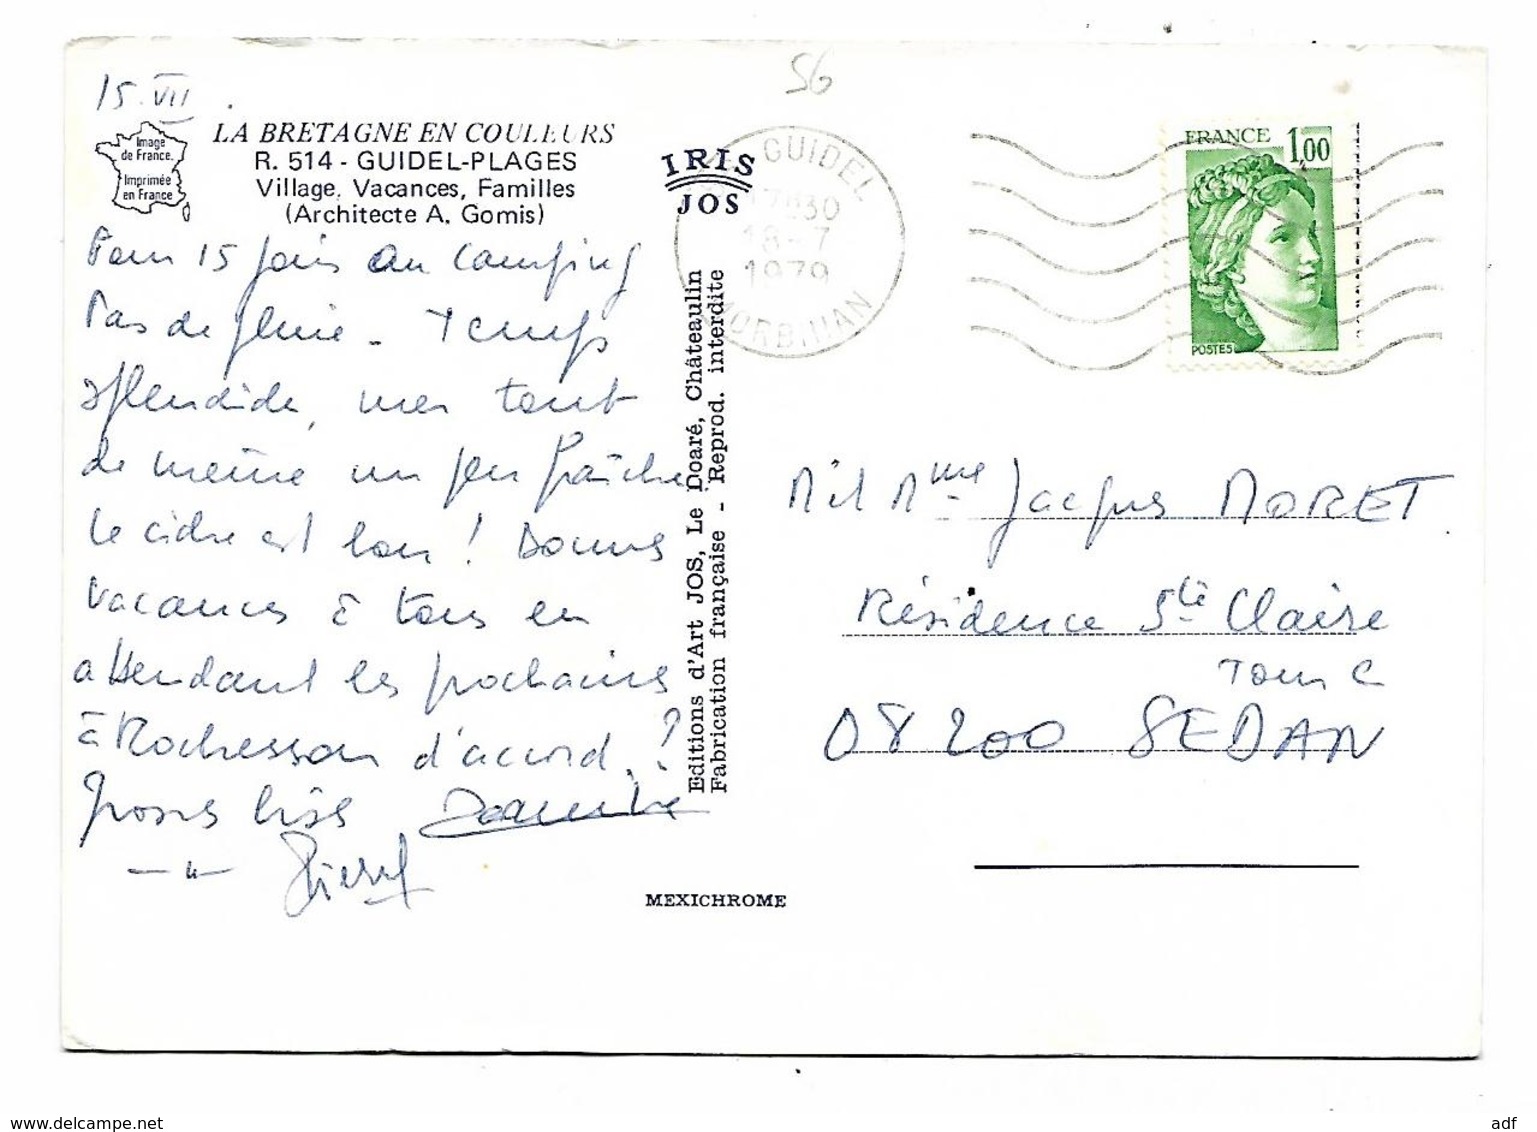 56
15.VII.
Image
de France.
Imprimée
en France
LA BRETAGNE EN COULEURS
R. 514 - GUIDEL-PLAGES
Village, Vacances, Familles
(Architecte A. Gomis)
IRIS
JOS
GUIDEL
17H30
18-7
1979
MORBIHAN
FRANCE
1,00
POSTES
Pour 15 jours au camping
Pas de pluie - Temps
splendide, mer tout
de même un peu fraîche
Le cidre est bon! Bonnes
vacances à tous en
attendant les prochaines
à Rochesson d'accord.?
grosses bises
Pierre
Editions d'Art JOS, Le Doaré, Châteaulin
Fabrication française - Reprod. interdite
M et Mme Jacques MORET
Résidence Ste Claire
Tour C
08200 SEDAN
MEXICHROME
www.delcampe.net
adf